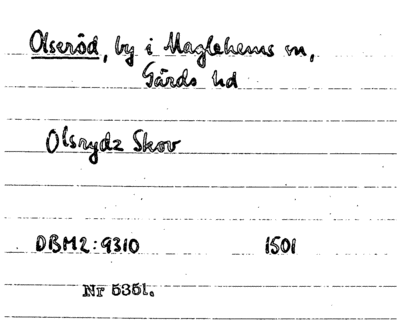 Olseröd, by i Maglehems sn,
Gärds hd
Olsrydz Skov
DBM2:9310 1501
Nr 5351.